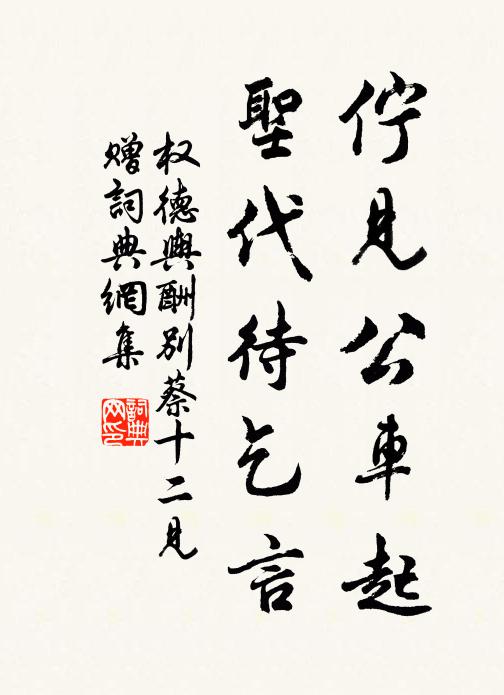 佇見公車起
聖代待乞言
权德輿酬别蔡十二見
赠詞典網集
詞典
网印